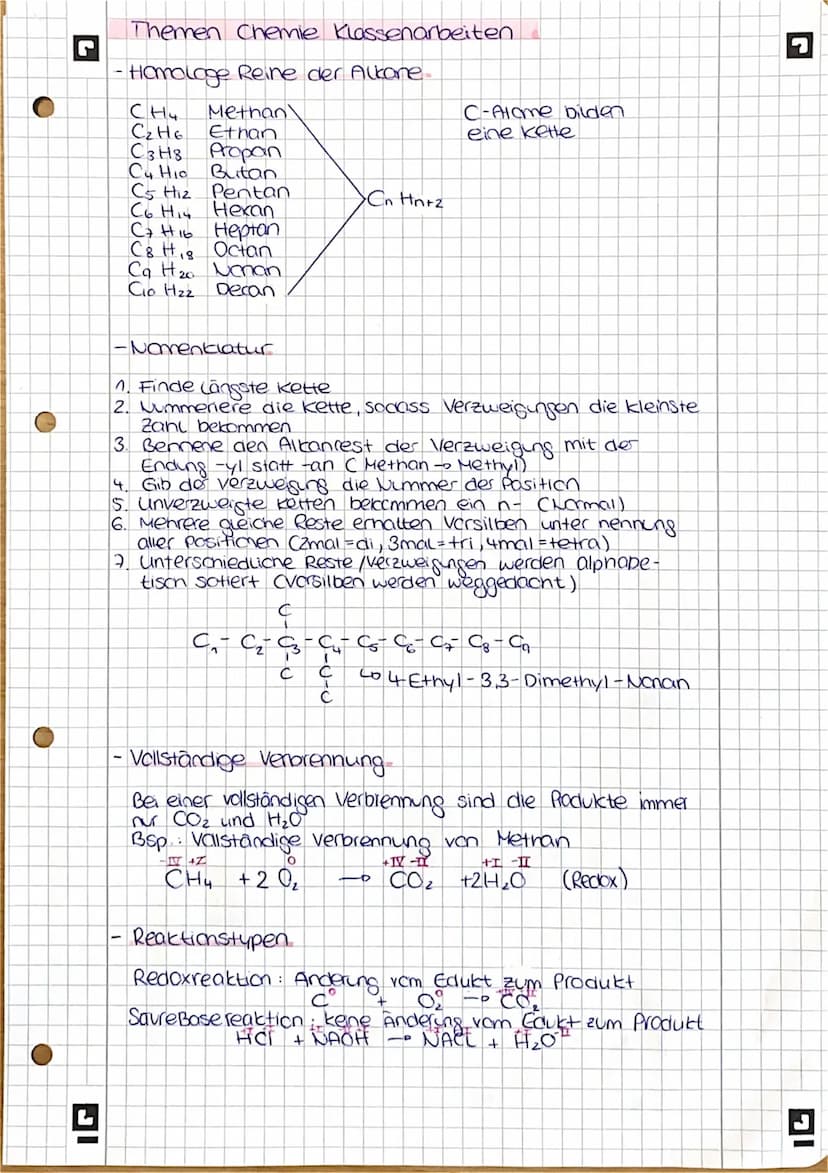 Themen Chemie Klassenarbeiten
- Homologe Reihe der Alkane
CH4 Methan
C-Atome bilden
C2H6 Ethan
eine Kette
C3H8 Propan
C4H10 Butan
C5H12 Pentan
CnHn+2
C6H14 Hexan
C7H16 Heptan
C8H18 Octan
C9H20 Nonan
C10H22 Decan
- Nomenklatur
1. Finde längste Kette
2. Nummeriere die Kette, sodass Verzweigungen die kleinste
Zahl bekommen
3. Bennene den Alkanrest der Verzweigung mit der
Endung -yl statt -an (Methan → Methyl)
4. Gib der Verzweigung die Nummer des Position
5. Unverzweigte Ketten bekommen ein n- (Normal)
6. Mehrere gleiche Reste erhalten Vorsilben unter nennung
aller Positionen (2mal=di, 3mal=tri, 4mal=tetra)
7. Unterschiedliche Reste/Verzweigungen werden alphabe-
tisch sotiert (Vorsilben werden weggedacht)
C
C1-C2-C3-C4-C5-C6-C7-C8-C9
C C ↳ 4-Ethyl-3,3-Dimethyl-Nonan
C
- Vollständige Verbrennung
Bei einer vollständigen Verbrennung sind die Produkte immer
nur CO2 und H2O
Bsp.: Vollständige Verbrennung von Methan
-IV +I 0 +IV -II +I -II
CH4 + 2 O2 → CO2 + 2H2O (Redox)
- Reaktionstypen
Redoxreaktion: Änderung vom Edukt zum Produkt
C + O2 → CO2
SäureBasereaktion: keine Änderung vom Edukt zum Produkt
HCl + NAOH → NACl + H2O